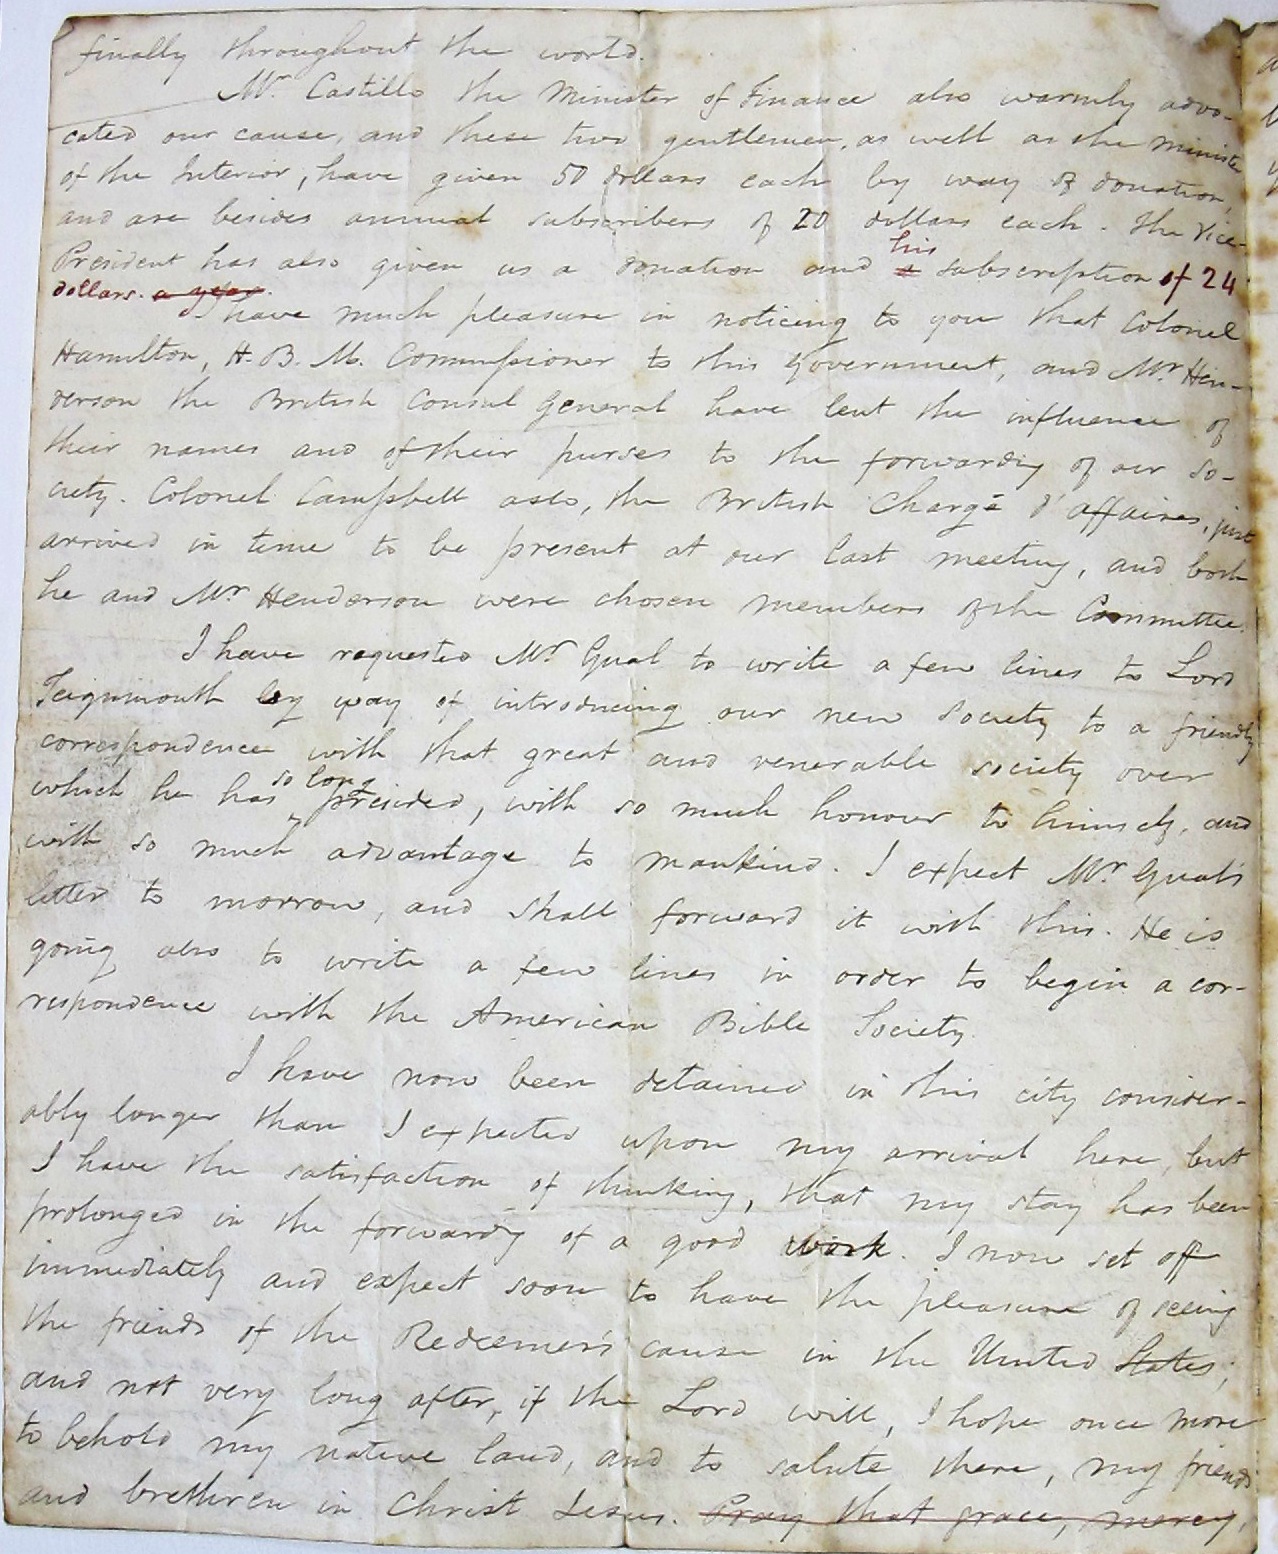 finally throughout the world.
Mr. Castillo the Minister of Finance also warmly advo-
cated our cause, and these two gentlemen, as well as the Minister
of the Interior, have given 50 dollars each by way of donation,
and are besides annual subscribers of 20 dollars each. The Vice-
his
President has also given us a donation and a subscription of 24
dollars. a year.
I have much pleasure in noticing to you that Colonel
Hamilton, H. B. M. Commissioner to this Government, and Mr. Hen-
derson the British Consul General have lent the influence of
their names and of their purses to the forwarding of our So-
ciety. Colonel Campbell also, the British Chargé d'affaires, just
arrived in time to be present at our last meeting, and both
he and Mr Henderson were chosen members of the Committee.
I have requested Mr. Gual to write a few lines to Lord
Teignmouth by way of introducing our new Society to a friendly
correspondence with that great and venerable society over
so long
which he has presided, with so much honour to himself, and
with so much advantage to mankind. I expect Mr. Gual's
letter to morrow, and shall forward it with this. He is
going also to write a few lines in order to begin a cor-
respondence with the American Bible Society.
I have now been detained in this city consider-
ably longer than I expected upon my arrival here, but
I have the satisfaction of thinking, that my stay has been
prolonged in the forwardg of a good work. I now set off
immediately and expect soon to have the pleasure of seeing
the friends of the Redeemer's cause in the United States;
and not very long after, if the Lord will, I hope once more
to behold my native land, and to salute there, my friends
and brethren in Christ Jesus. Pray that grace, mercy,